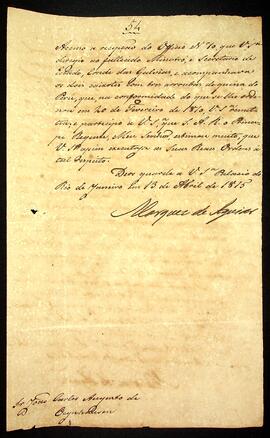 54
Accuso a recepção do Officio Nº 70 que V. Sª
dirigio ao fallecido Ministro, e Secretario de
Estado, Conde das Galveas, e acompanhava
os dois caixotes com tres arrobas de quina do
Perú, que na conformidade do que se lhe orde-
nou em 20 de Fevereiro de 1810, V. Sª remet-
tia; e participo a V. Sª que S. A. R. o Princi-
pe Regente, Meu Senhor, estimou muito, que
V. Sª assim executasse as Suas Reaes Ordens a
tal respeito.
Deos guarde a V. Sª Palacio do
Rio de Janeiro em 13 de Abril de 1815
Marquez de Aguiar
Sr. João Carlos Augusto de
Oeynhausen